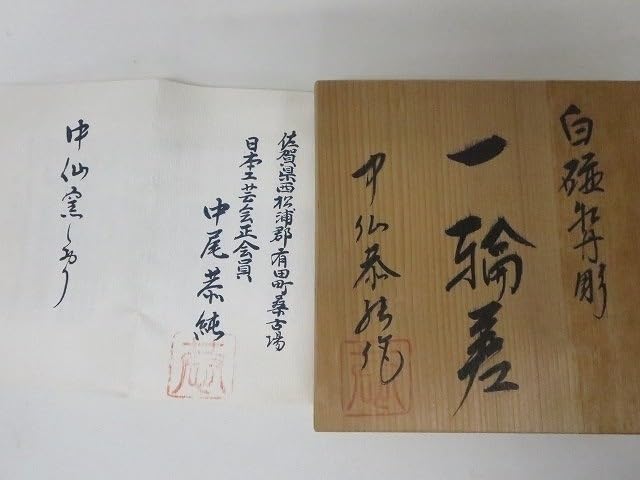 白磁牡丹彫
一輪差
中仙恭純作
佐賀県西松浦郡有田町桑古場
日本工芸会正会員
中尾恭純
中仙窯しおり